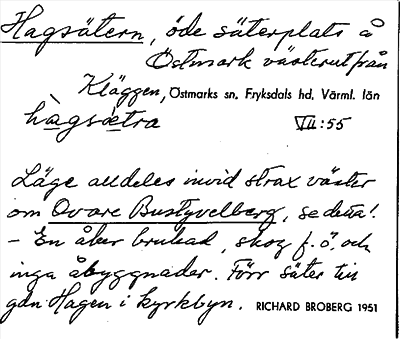 Hagsätern, öde säterplats å
Östmark västerut från
Kläggen, Östmarks sn. Fryksdals hd. Värml. län
hàgsètra VII:55
Läge alldeles invid strax väster
om Övare Bustyvelberg, se detta!
- En åker brukad, skog f.ö. och
inga åbyggnader. Förr säter till
gdn Hagen i kyrkbyn. RICHARD BROBERG 1951